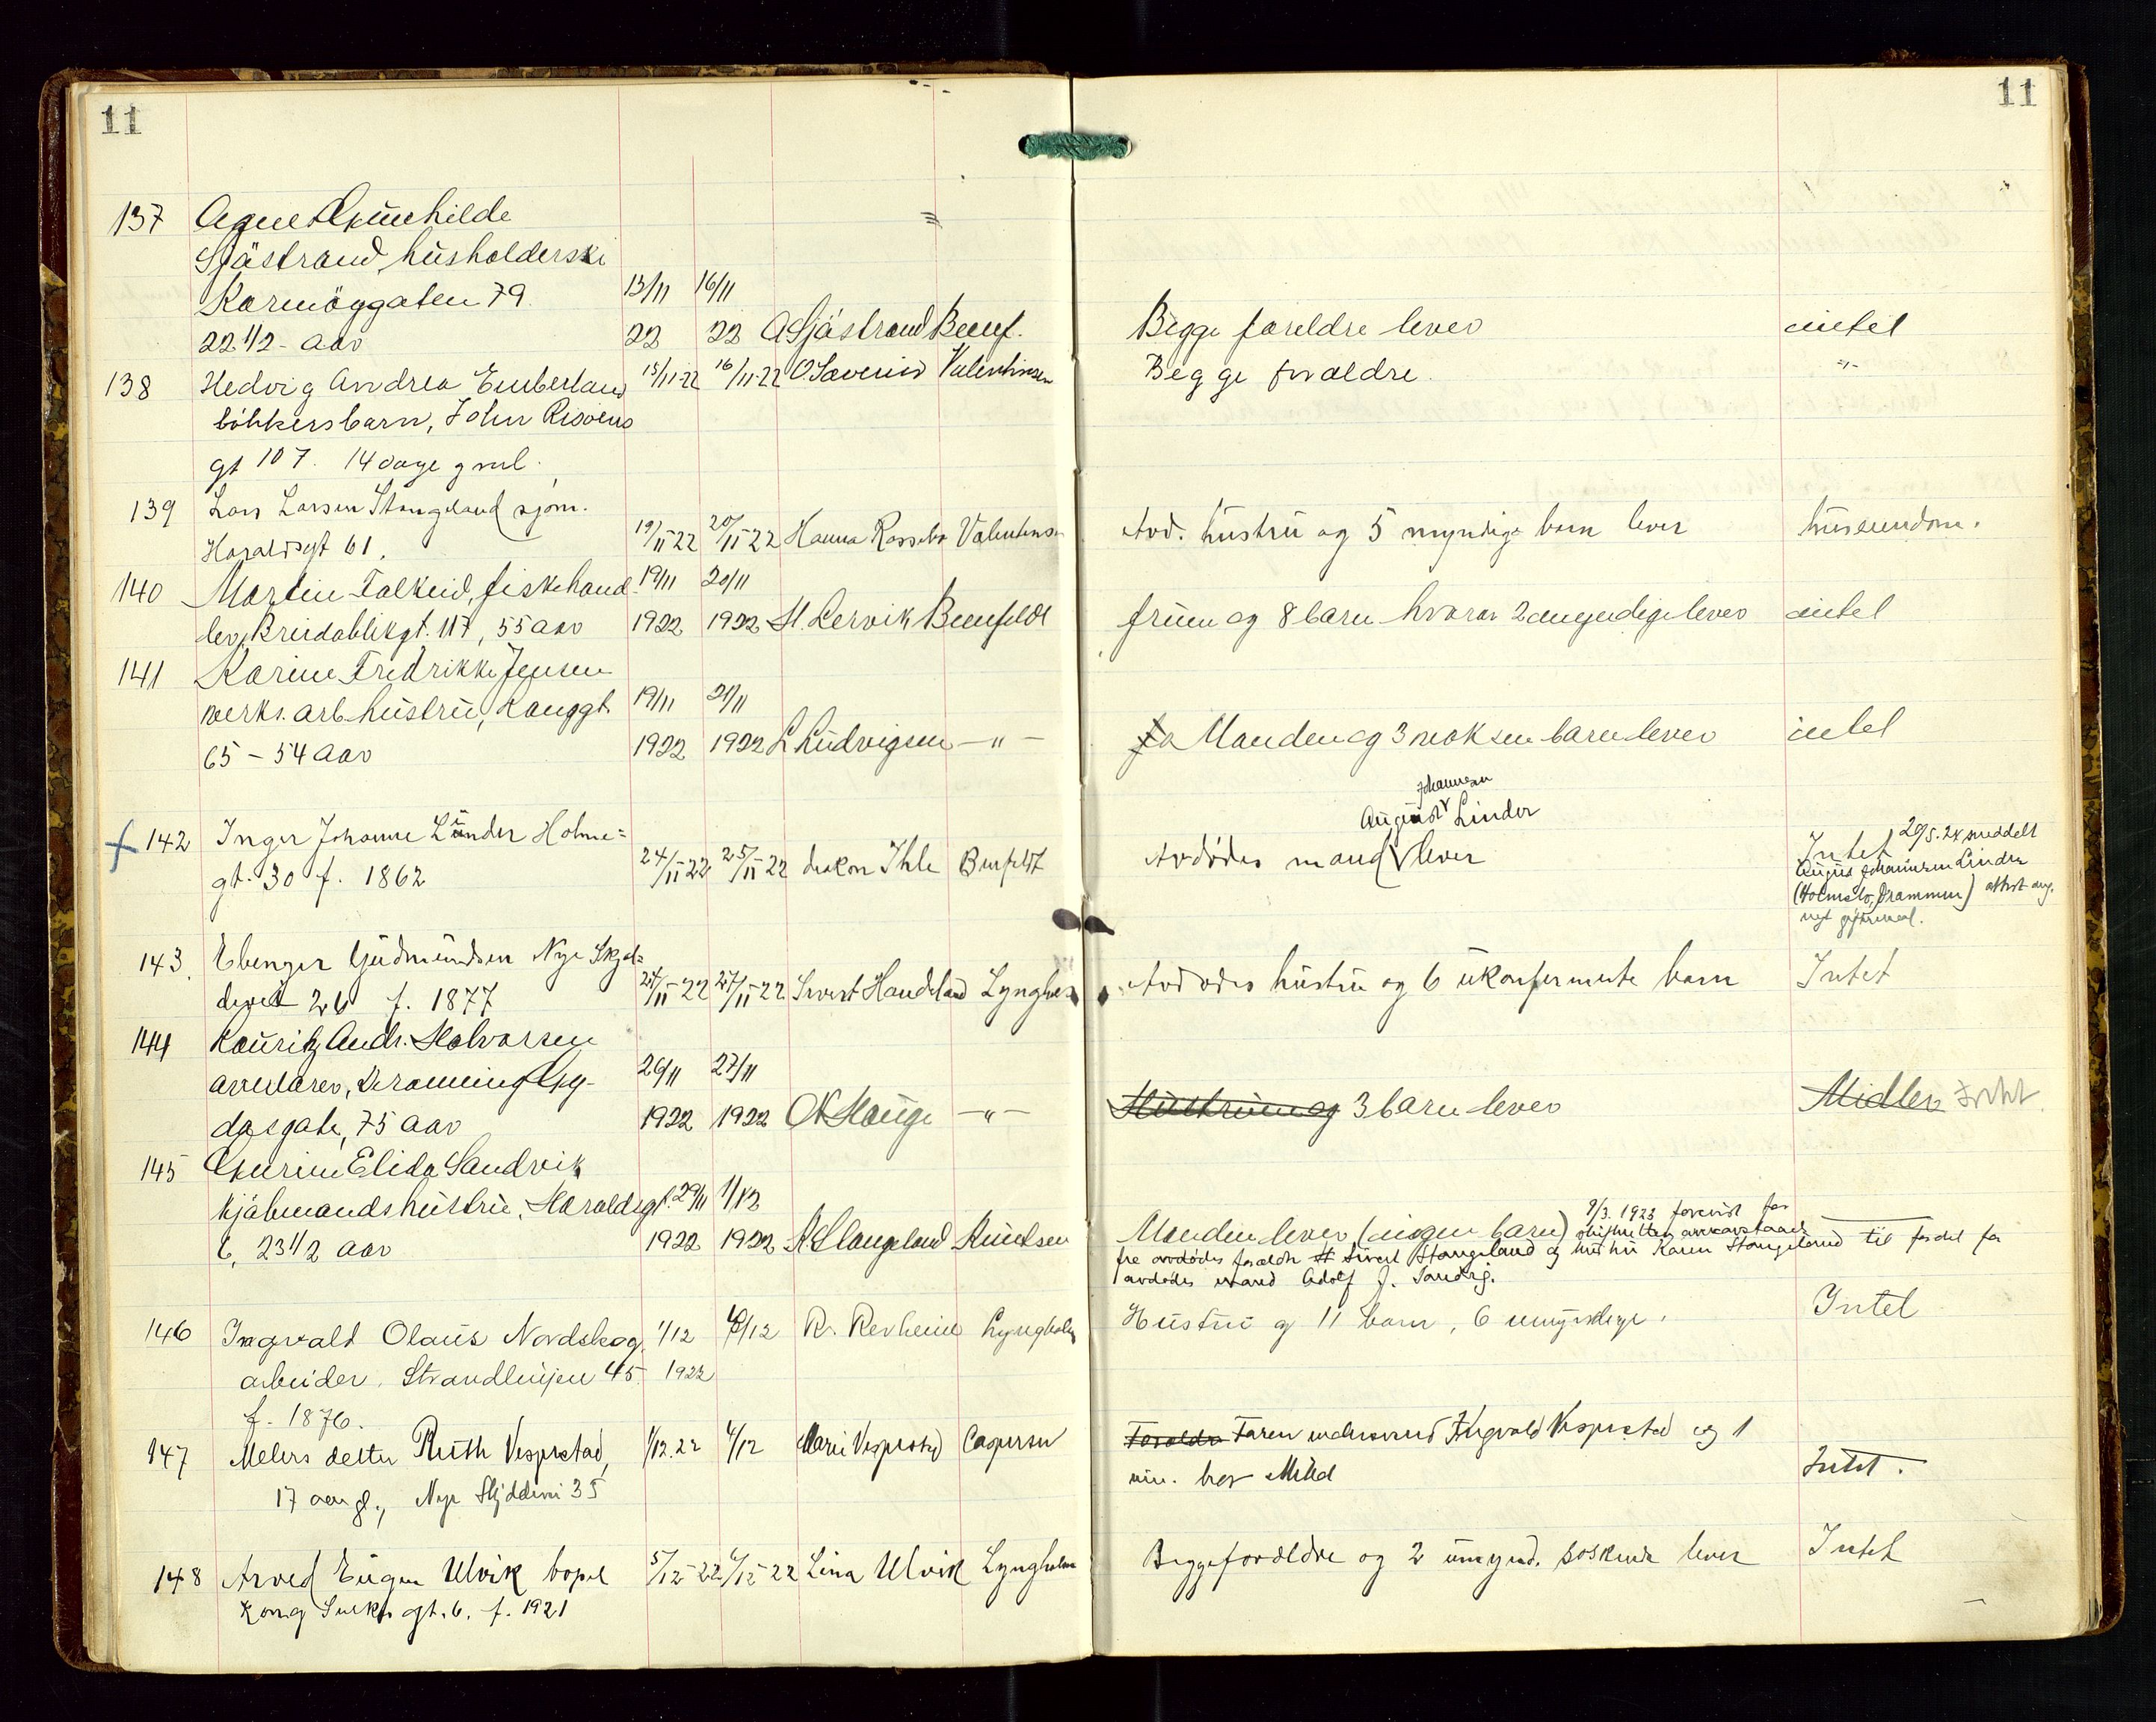 11
11
137 Agnes Gunhilde
Sjøstrand, husholderske
Karmöygaten 79
13/11 16/11
22 1/2 - aar 22 22 A Sjöstrand Beenf. Begge foreldre lever intet
138 Hedvig Andrea Emberland 15/11-22 16/11-22 O Severin Valentinsen Begge foreldre. -"-
bökkersbarn, John
gt 107. 14 dage gml.
139 Lars Larsen Stangeland sjøm.
Haraldsgt 61. 19/11 22 20/11 22 Hanna Rossebø Valentinsen Avd. hustru og 5 myndige barn lever huseiendom.
140 Martin Falkeid, fiskehand- 19/11 20/11
ler, Breidablikgt. 117, 55 aar 1922 1922 H. Lervik Beenfeldt fruen og 8 barn hvorav 2 umyndige lever intet
141 Karine Fredrikke Jensen
verks. arb. hustru, Langgt. 19/11 21/11
65 - 54 aar 1922 1922 L Ludvigsen -"- Manden og 3 voksne barn lever intet
Johannesen
August Linder
142 Inger Johanne Linder Holme=
gt. 30 f. 1862 24/11 22 25/11 22 diakon Ihle Avdødes mand lever Intet 20/5.24 meddelt
August Johannesen Linder
(Holmsbo, Drammen) attest ang.
nyt giftermaal.
143. Ebenezer Gudmundsen Nye Skjol-
devei 26 f. 1877 24/11 22 27/11 22 Sivert Haudeland Lyngholm Avdødes hustru og 6 ukonfirmerte barn Intet
144 Lauritz Andr. Halvorsen
26/11 27/11
dasgate, 75 aar 1922 1922 O K Hauge -"- Hustruen og 3 barn lever Midler Intet
145 Elida Sandvik
kjøbmandshustru, Haraldsgt. 29/11 1/12
6, 23 1/2 aar 1922 1922 K Stangeland Knudsen Manden lever (ingen barn) 9/3. 1923 forevist for
skifteretten arvavstaaelse
fra avdødes forældre Sivert Stangeland og hustru Karen Stangeland til fordel for
avdødes mand Adolf J. Sandvig.
146 Ingvald Olaus Nordskog 1/12 2/12 R. Revheim Lyngholm Hustru og 11 barn, 6 umyndige. Intet
arbeider. Strandlinjen 45. 1922
f. 1876.
147 Meiers datter Ruth Vespestad, 1/12.22 4/12 Marie Vespestad Caspersen Forældre Faren Ingvald Vespestad og 1
17 aar g., Nye Skjoldevei 35 Intet.
148 Arved Eugen Ulvik bopel 5/12 22 6/12 22 Lina Ulvik Lyngholm Begge forældre og 2 umynd. søskende lever Intet
Kong Sverres gt. 6. f. 1921